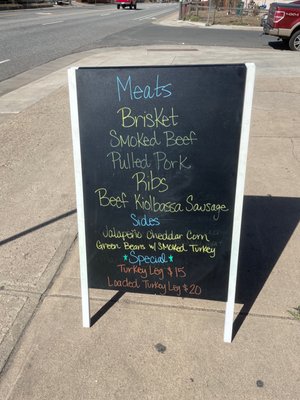 Meats
Brisket
Smoked Beef
Pulled Pork
Ribs
Beef Kiolbassa Sausage
Sides
Jalapeño Cheddar Corn
Green Beans w/ Smoked Turkey
*Special*
Turkey Leg $15
Loaded Turkey Leg $20